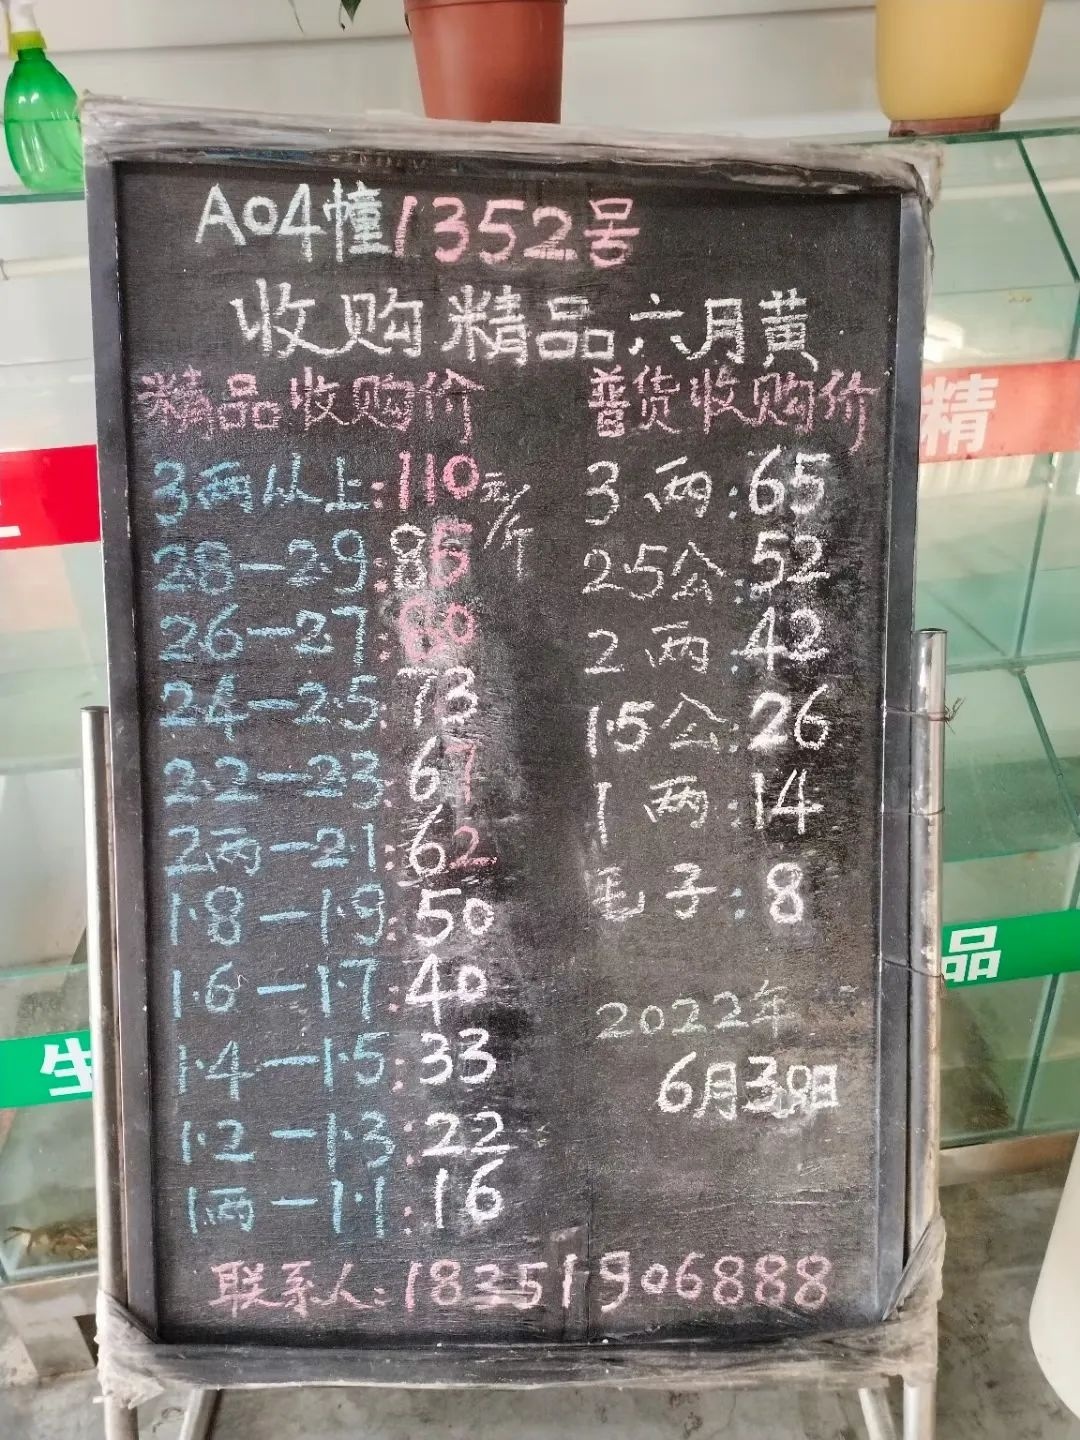 A04幢1352号
收购精品六月黄
精品收购价
3两以上:110元/斤
2.8-2.9:85
2.6-2.7:80
2.4-2.5:73
2.2-2.3:67
2两-2.1:62
1.8-1.9:50
1.6-1.7:40
1.4-1.5:33
1.2-1.3:22
1两-1.1:16
普货收购价
3两:65
2.5公:52
2两:42
1.5公:26
1两:14
毛子:8
2022年
6月30日
联系人:18351906888
精
品
生